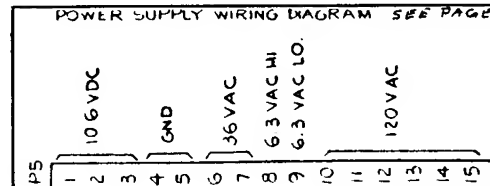 POWER SUPPLY WIRING DIAGRAM SEE PAGE
106 VDC
GND
36 VAC
6.3 VAC HI
6.3 VAC LO.
120 VAC
P5 1 2 3 4 5 6 7 8 9 10 11 12 13 14 15